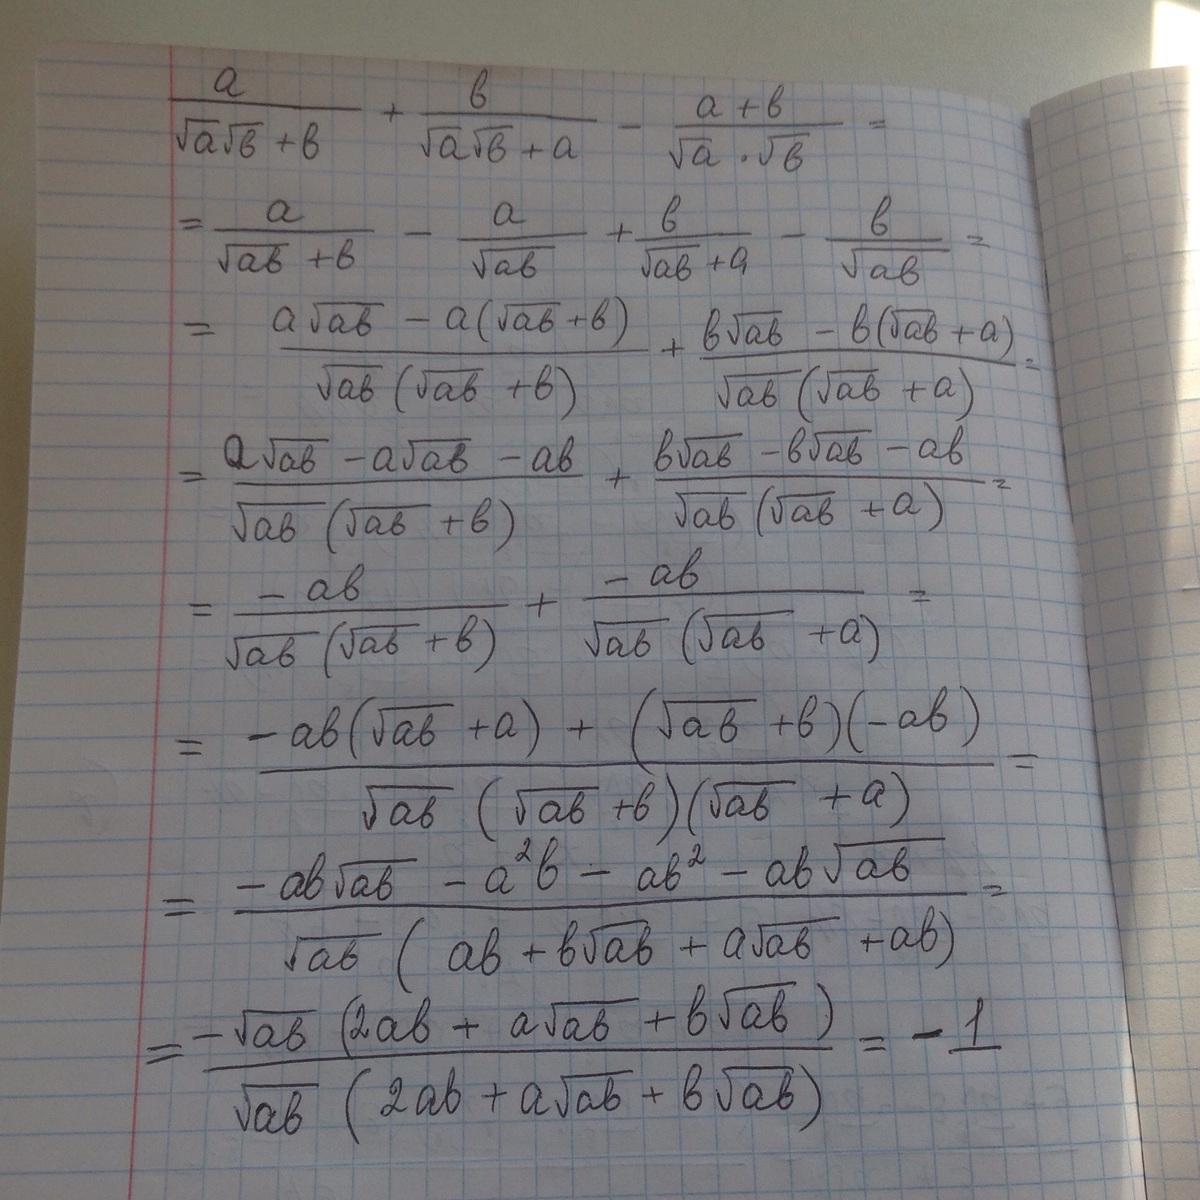 a/(√a√b + b) + b/(√a√b + a) − (a + b)/(√a · √b) =
= a/(√ab + b) − a/√ab + b/(√ab + a) − b/√ab =
= (a√ab − a(√ab + b))/(√ab (√ab + b)) + (b√ab − b(√ab + a))/(√ab (√ab + a)) =
= (a√ab − a√ab − ab)/(√ab (√ab + b)) + (b√ab − b√ab − ab)/(√ab (√ab + a)) =
= −ab/(√ab (√ab + b)) + −ab/(√ab (√ab + a)) =
= (−ab(√ab + a) + (√ab + b)(−ab))/(√ab (√ab + b)(√ab + a)) =
= (−ab√ab − a²b − ab² − ab√ab)/(√ab (ab + b√ab + a√ab + ab)) =
= −√ab (2ab + a√ab + b√ab)/(√ab (2ab + a√ab + b√ab)) = −1